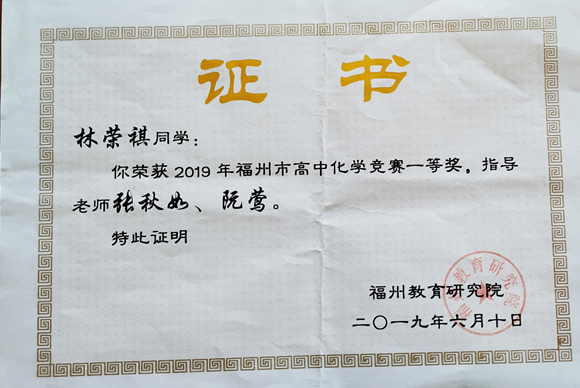 证书
林荣祺同学：
你荣获2019年福州市高中化学竞赛一等奖。指导
老师张秋如、阮莺。
特此证明
福州教育研究院
福州教育研究院
二〇一九年六月十日